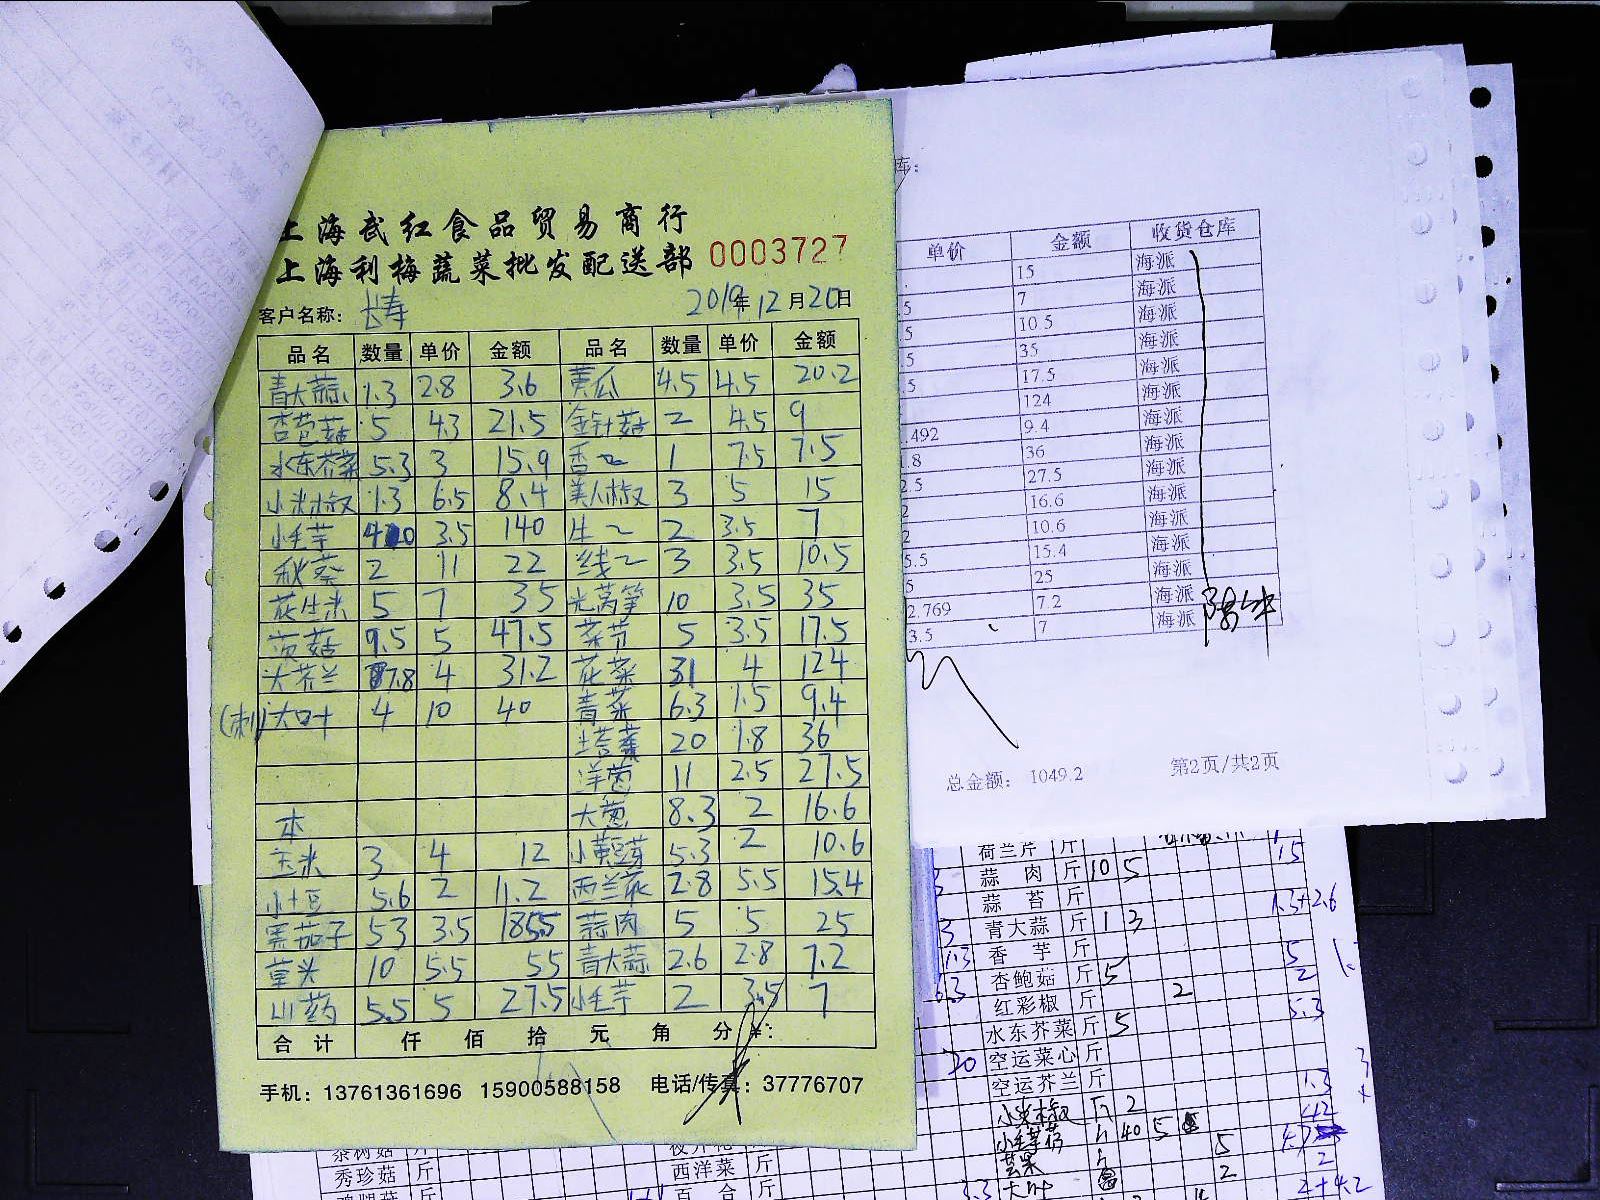 上海武红食品贸易商行
上海利梅蔬菜批发配送部 0003727
客户名称: 长寿 2019年12月20日
品名 数量 单价 金额 品名 数量 单价 金额
青大蒜 1.3 2.8 3.6 黄瓜 4.5 4.5 20.2
杏苞菇 5 4.3 21.5 金针菇 2 4.5 9
水东芥菜 5.3 3 15.9 香〜 1 7.5 7.5
小米椒 1.3 6.5 8.4 美人椒 3 5 15
小毛芋 40 3.5 140 生〜 2 3.5 7
秋葵 2 11 22 线〜 3 3.5 10.5
花生米 5 7 35 光莴笋 10 3.5 35
茨菇 9.5 5 47.5 菜节 5 3.5 17.5
大芥兰 7.8 4 31.2 花菜 31 4 124
(刺)大叶 4 10 40 青菜 6.3 1.5 9.4
塔菜 20 1.8 36
洋茵 11 2.5 27.5
本 大葱 8.3 2 16.6
玉米 3 4 12 小黄豆芽 5.3 2 10.6
小土豆 5.6 2 11.2 西兰花 2.8 5.5 15.4
黑茄子 53 3.5 185.5 蒜肉 5 5 25
草头 10 5.5 55 青大蒜 2.6 2.8 7.2
山药 5.5 5 27.5 小毛芋 2 3.5 7
合计 仟 佰 拾 元 角 分 ¥:
手机: 13761361696 15900588158 电话/传真: 37776707
库:
单价 金额 收货仓库
15 海派
.5 7 海派
.5 10.5 海派
.5 35 海派
.5 17.5 海派
124 海派
.492 9.4 海派
.8 36 海派
2.5 27.5 海派
2 16.6 海派
2 10.6 海派
5.5 15.4 海派
5 25 海派
2.769 7.2 海派
3.5 7 海派
总金额: 1049.2 第2页/共2页
荷兰芹 斤 15
蒜肉 斤 10 5
蒜苔 斤 1.3+2.6
青大蒜 斤 1 3
香芋 斤 5
杏鲍菇 斤 5 2
红彩椒 斤 2 5.3
水东芥菜 斤 5
空运菜心 斤
空运芥兰 斤 1.3
小米椒 斤 2 42
40 5 5
芒果 2
大叶 2+4.2
茶树菇 斤
秀珍菇 斤 西洋菜 斤
鸡腿菇 斤 百合 斤